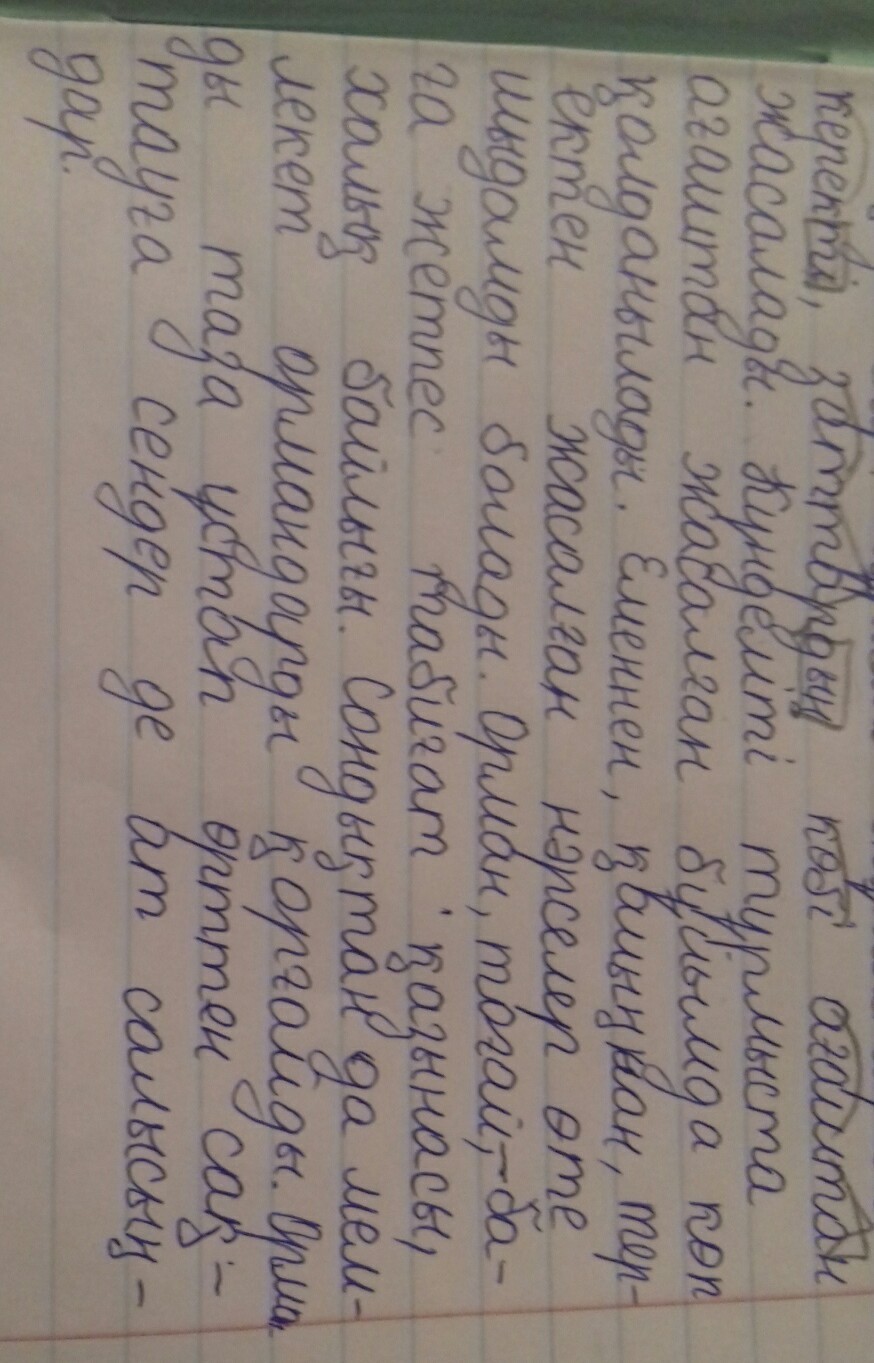 керекті, заттардың көбі ағаштан
жасалады. Күнделіті турмыста
ағаштан жасалған буйымда көп
қолданылады. Еменнен, қайыңнан, тер-
ектен жасалған нәрселер өте
шыдамды болады. Орман, тоғай, - ба-
ға жетпес табиғат қазынасы,
халық байлығы. Сондықтан да мем-
лекет ормандарды қорғайды. Орман
ды таза устап өрттен сақ-
тауға сендер де ат салысың-
дар.